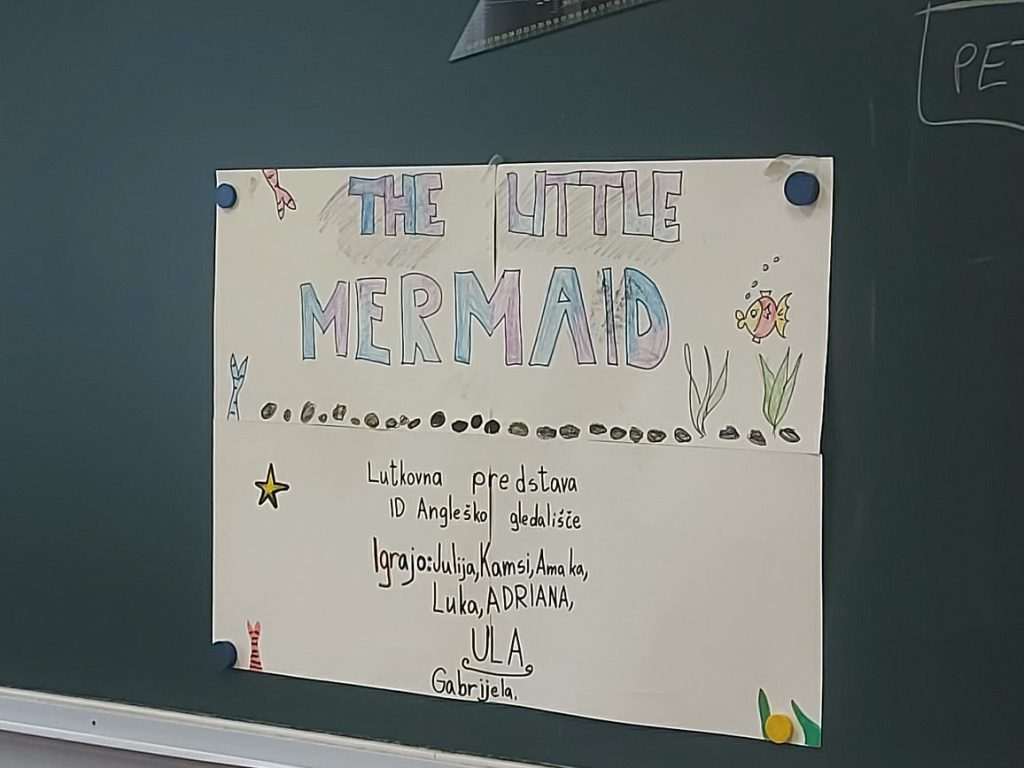 PE
THE LITTLE
MERMAID
Lutkovna predstava
ID Angleško gledališče
Igrajo: Julija, Kamsi, Amaka,
Luka, ADRIANA,
ULA
Gabrijela.